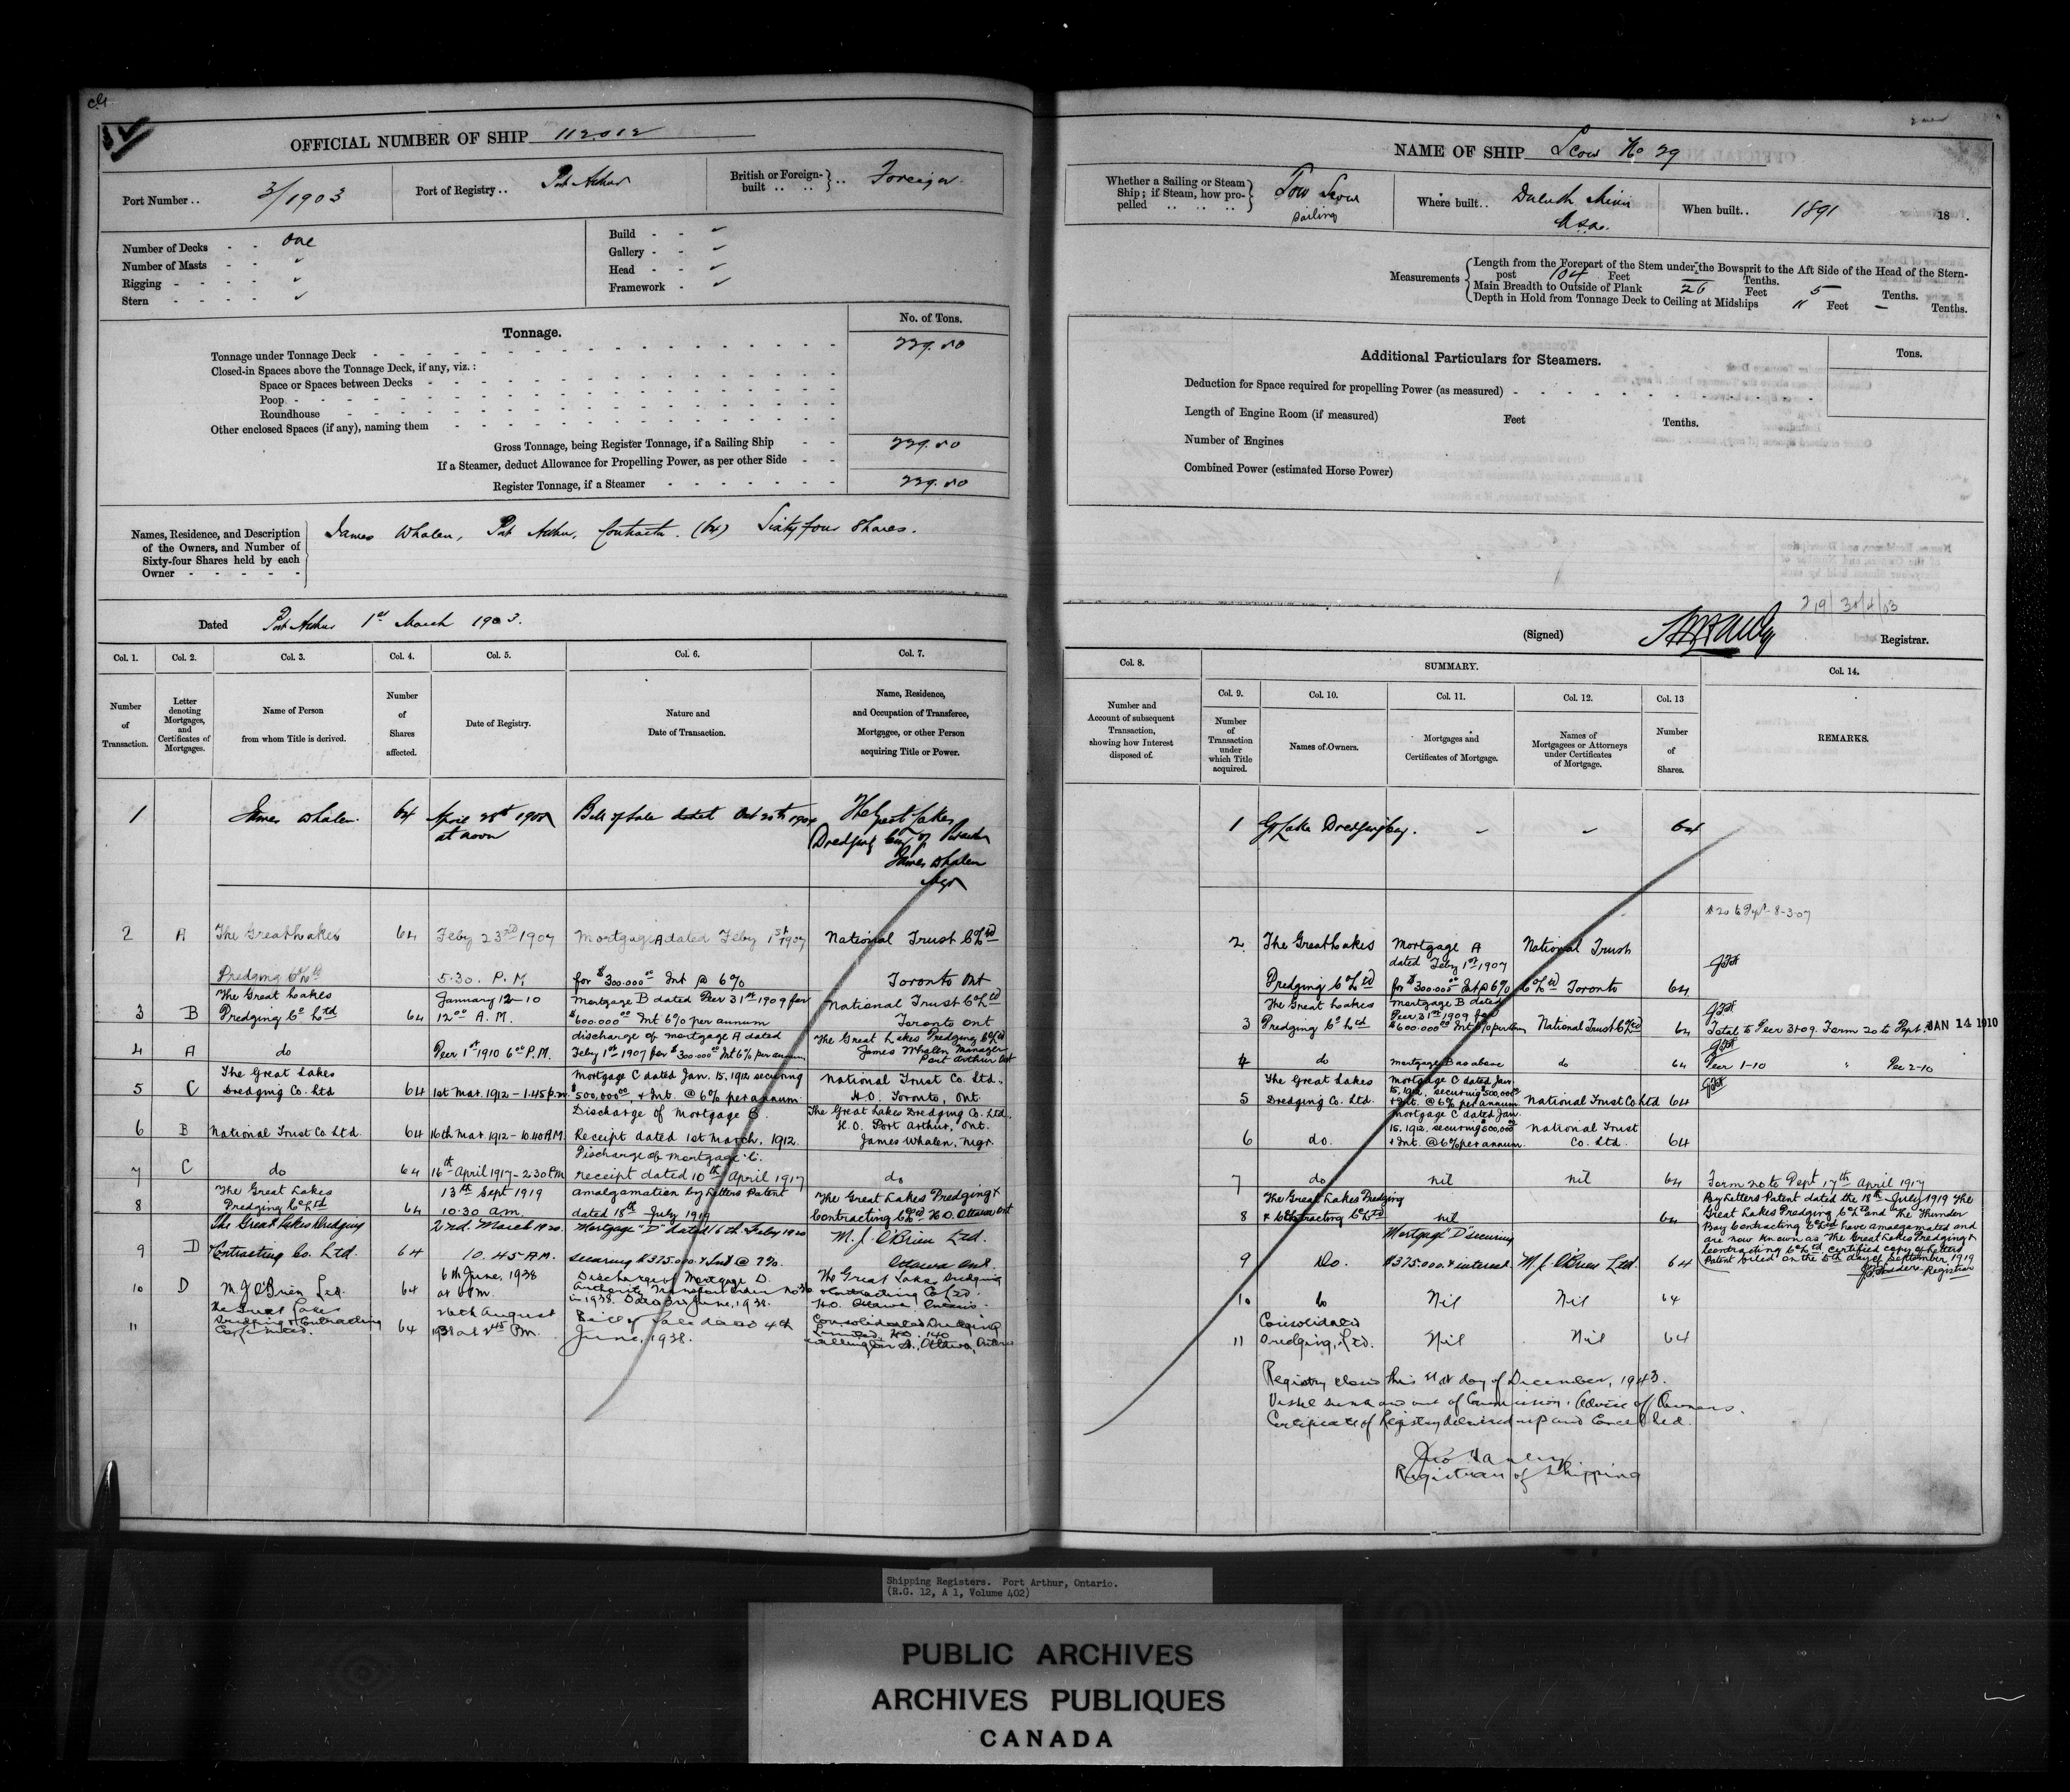 OFFICIAL NUMBER OF SHIP 112012
Port Number .. 3/1903
Port of Registry .. Port Arthur
British or Foreign-built .. .. } .. Foreign
Number of Decks - - One
Number of Masts - -
Rigging - - - -
Stern - - - -
Build - -
Gallery - -
Head - -
Framework -
Tonnage.
No. of Tons.
Tonnage under Tonnage Deck 229.50
Closed-in Spaces above the Tonnage Deck, if any, viz. :
Space or Spaces between Decks
Poop
Roundhouse
Other enclosed Spaces (if any), naming them
Gross Tonnage, being Register Tonnage, if a Sailing Ship 229.50
If a Steamer, deduct Allowance for Propelling Power, as per other Side
Register Tonnage, if a Steamer 229.50
Names, Residence, and Description of the Owners, and Number of Sixty-four Shares held by each Owner
James Whalen, Port Arthur, Contractor. (64) Sixty four Shares.
Dated Port Arthur 1st March 1903.
Col. 1. Col. 2. Col. 3. Col. 4. Col. 5. Col. 6. Col. 7.
Number of Transaction.
Letter denoting Mortgages, and Certificates of Mortgages.
Name of Person from whom Title is derived.
Number of Shares affected.
Date of Registry.
Nature and Date of Transaction.
Name, Residence, and Occupation of Transferee, Mortgagee, or other Person acquiring Title or Power.
1 James Whalen 64 April 28th at noon Bill of Sale dated Oct 20th The Great Lakes Dredging James Whalen Mgr
2 A The Great Lakes Dredging Co Ltd 64 Feby 23rd 1907 5.30. P.M. Mortgage A dated Feby 1st 1907 for $300.000 00 Int @ 6% National Trust Co Ltd Toronto Ont
3 B The Great Lakes Dredging Co Ltd 64 January 12-10 12 00 A.M. Mortgage B dated Decr 31st 1909 for $600.000 00 Int 6% per annum National Trust Co Ltd Toronto Ont
4 A do Decr 1st 1910 6 00 P.M. discharge of mortgage A dated Feby 1st 1907 for $300.000 00 Int 6% per annum The Great Lakes Dredging Co Ltd James Whalen Manager Port Arthur Ont
5 C The Great Lakes Dredging Co. Ltd 64 1st Mar. 1912 - 1.45 p.m. Mortgage C dated Jan. 15. 1912 securing $500,000 00, & Int. @ 6% per annum. National Trust Co. Ltd., H.O. Toronto, Ont.
6 B National Trust Co. Ltd. 64 16th Mar. 1912 - 10.40 A.M. Discharge of Mortgage B. Receipt dated 1st March, 1912. The Great Lakes Dredging Co. Ltd. H.O. Port Arthur, Ont. James Whalen, Mgr.
7 C do 64 16th April 1917 - 2.30 P.M. Discharge of mortgage C. receipt dated 10th April 1917 do
8 The Great Lakes Dredging Co Ltd 64 13th Sept 1919 10.30 am. amalgamation by Letters Patent dated 18th July 1919 The Great Lakes Dredging & Contracting Co Ltd H.O. Ottawa Ont
9 D The Great Lakes Dredging & Contracting Co. Ltd. 64 2nd. March 1920. 10.45 A.M. Mortgage "D" dated 16th Feby 1920 securing $375.000. & Int @ 7%. M. J. O'Brien Ltd. Ottawa Ont.
10 D M. J. O'Brien Ltd. 64 6th June, 1938 Discharge of Mortgage D. The Great Lakes Dredging & Contracting Co. Ltd. H.O. Ottawa, Ontario.
11 The Great Lakes Dredging & Contracting Co. Limited. 64 26th August 1938 Bill of Sale dated 4th June, 1938. Consolidated Dredging Limited, H.O. 140 Wellington St., Ottawa, Ontario
NAME OF SHIP Scow No 29
Whether a Sailing or Steam Ship; if Steam, how propelled .. .. .. Tow Scow Sailing
Where built .. Duluth Minn U.S.A.
When built .. 1891 18 .
Measurements
Length from the Forepart of the Stem under the Bowsprit to the Aft Side of the Head of the Stern-
post 104 Feet - Tenths.
Main Breadth to Outside of Plank 26 Feet 5 Tenths.
Depth in Hold from Tonnage Deck to Ceiling at Midships 11 Feet - Tenths.
Additional Particulars for Steamers.
Tons.
Deduction for Space required for propelling Power (as measured)
Length of Engine Room (if measured) Feet Tenths.
Number of Engines
Combined Power (estimated Horse Power)
(Signed) Registrar.
Col. 8. SUMMARY. Col. 14.
Col. 9. Col. 10. Col. 11. Col. 12. Col. 13
Number and Account of subsequent Transaction, showing how Interest disposed of.
Number of Transaction under which Title acquired.
Names of Owners.
Mortgages and Certificates of Mortgage.
Names of Mortgagees or Attorneys under Certificates of Mortgage.
Number of Shares.
REMARKS.
1 Gt Lake Dredging Coy. - - 64
2 The Great Lakes Dredging Co Ltd Mortgage A dated Feby 1st 1907 for $300.000 00 Int @ 6% National Trust Co Ltd Toronto 64
3 The Great Lakes Dredging Co Ltd Mortgage B dated Decr 31st 1909 for $600.000 00 Int 6% per ann National Trust Co Ltd 64 JAN 14 1910
4 do Mortgage B as above do 64 Decr 1-10 " Dec 2-10
5 The Great Lakes Dredging Co. Ltd. Mortgage C dated Jan. 15, 1912, securing $500,000 00 & Int. @ 6% per annum National Trust Co Ltd 64
6 do. Mortgage C dated Jan. 15. 1912. securing $500,000 00 & Int. @ 6% per annum. National Trust Co. Ltd. 64
7 do nil nil 64 Form no to Dept 17th April 1917
8 The Great Lakes Dredging & Contracting Co Ltd nil 64 By Letters Patent dated the 18th July 1919 The Great Lakes Dredging Co Ltd and The Thunder Bay Contracting Co Ltd have amalgamated and are now known as The Great Lakes Dredging & Contracting Co Ltd. Certified copy of Letters Patent filed on the 5th day of September, 1919 Registrar
9 Do. Mortgage "D" securing $375.000. & interest M. J. O'Brien Ltd. 64
10 Do Nil Nil 64
11 Consolidated Dredging, Ltd. Nil Nil 64
Registry closed this day of December, 1943.
Vessel sunk and out of Commission. Advice of Owners.
Certificate of Registry delivered up and Cancelled.
Registrar of Shipping
Shipping Registers. Port Arthur, Ontario.
(R.G. 12, A 1, Volume 402)
PUBLIC ARCHIVES
ARCHIVES PUBLIQUES
CANADA